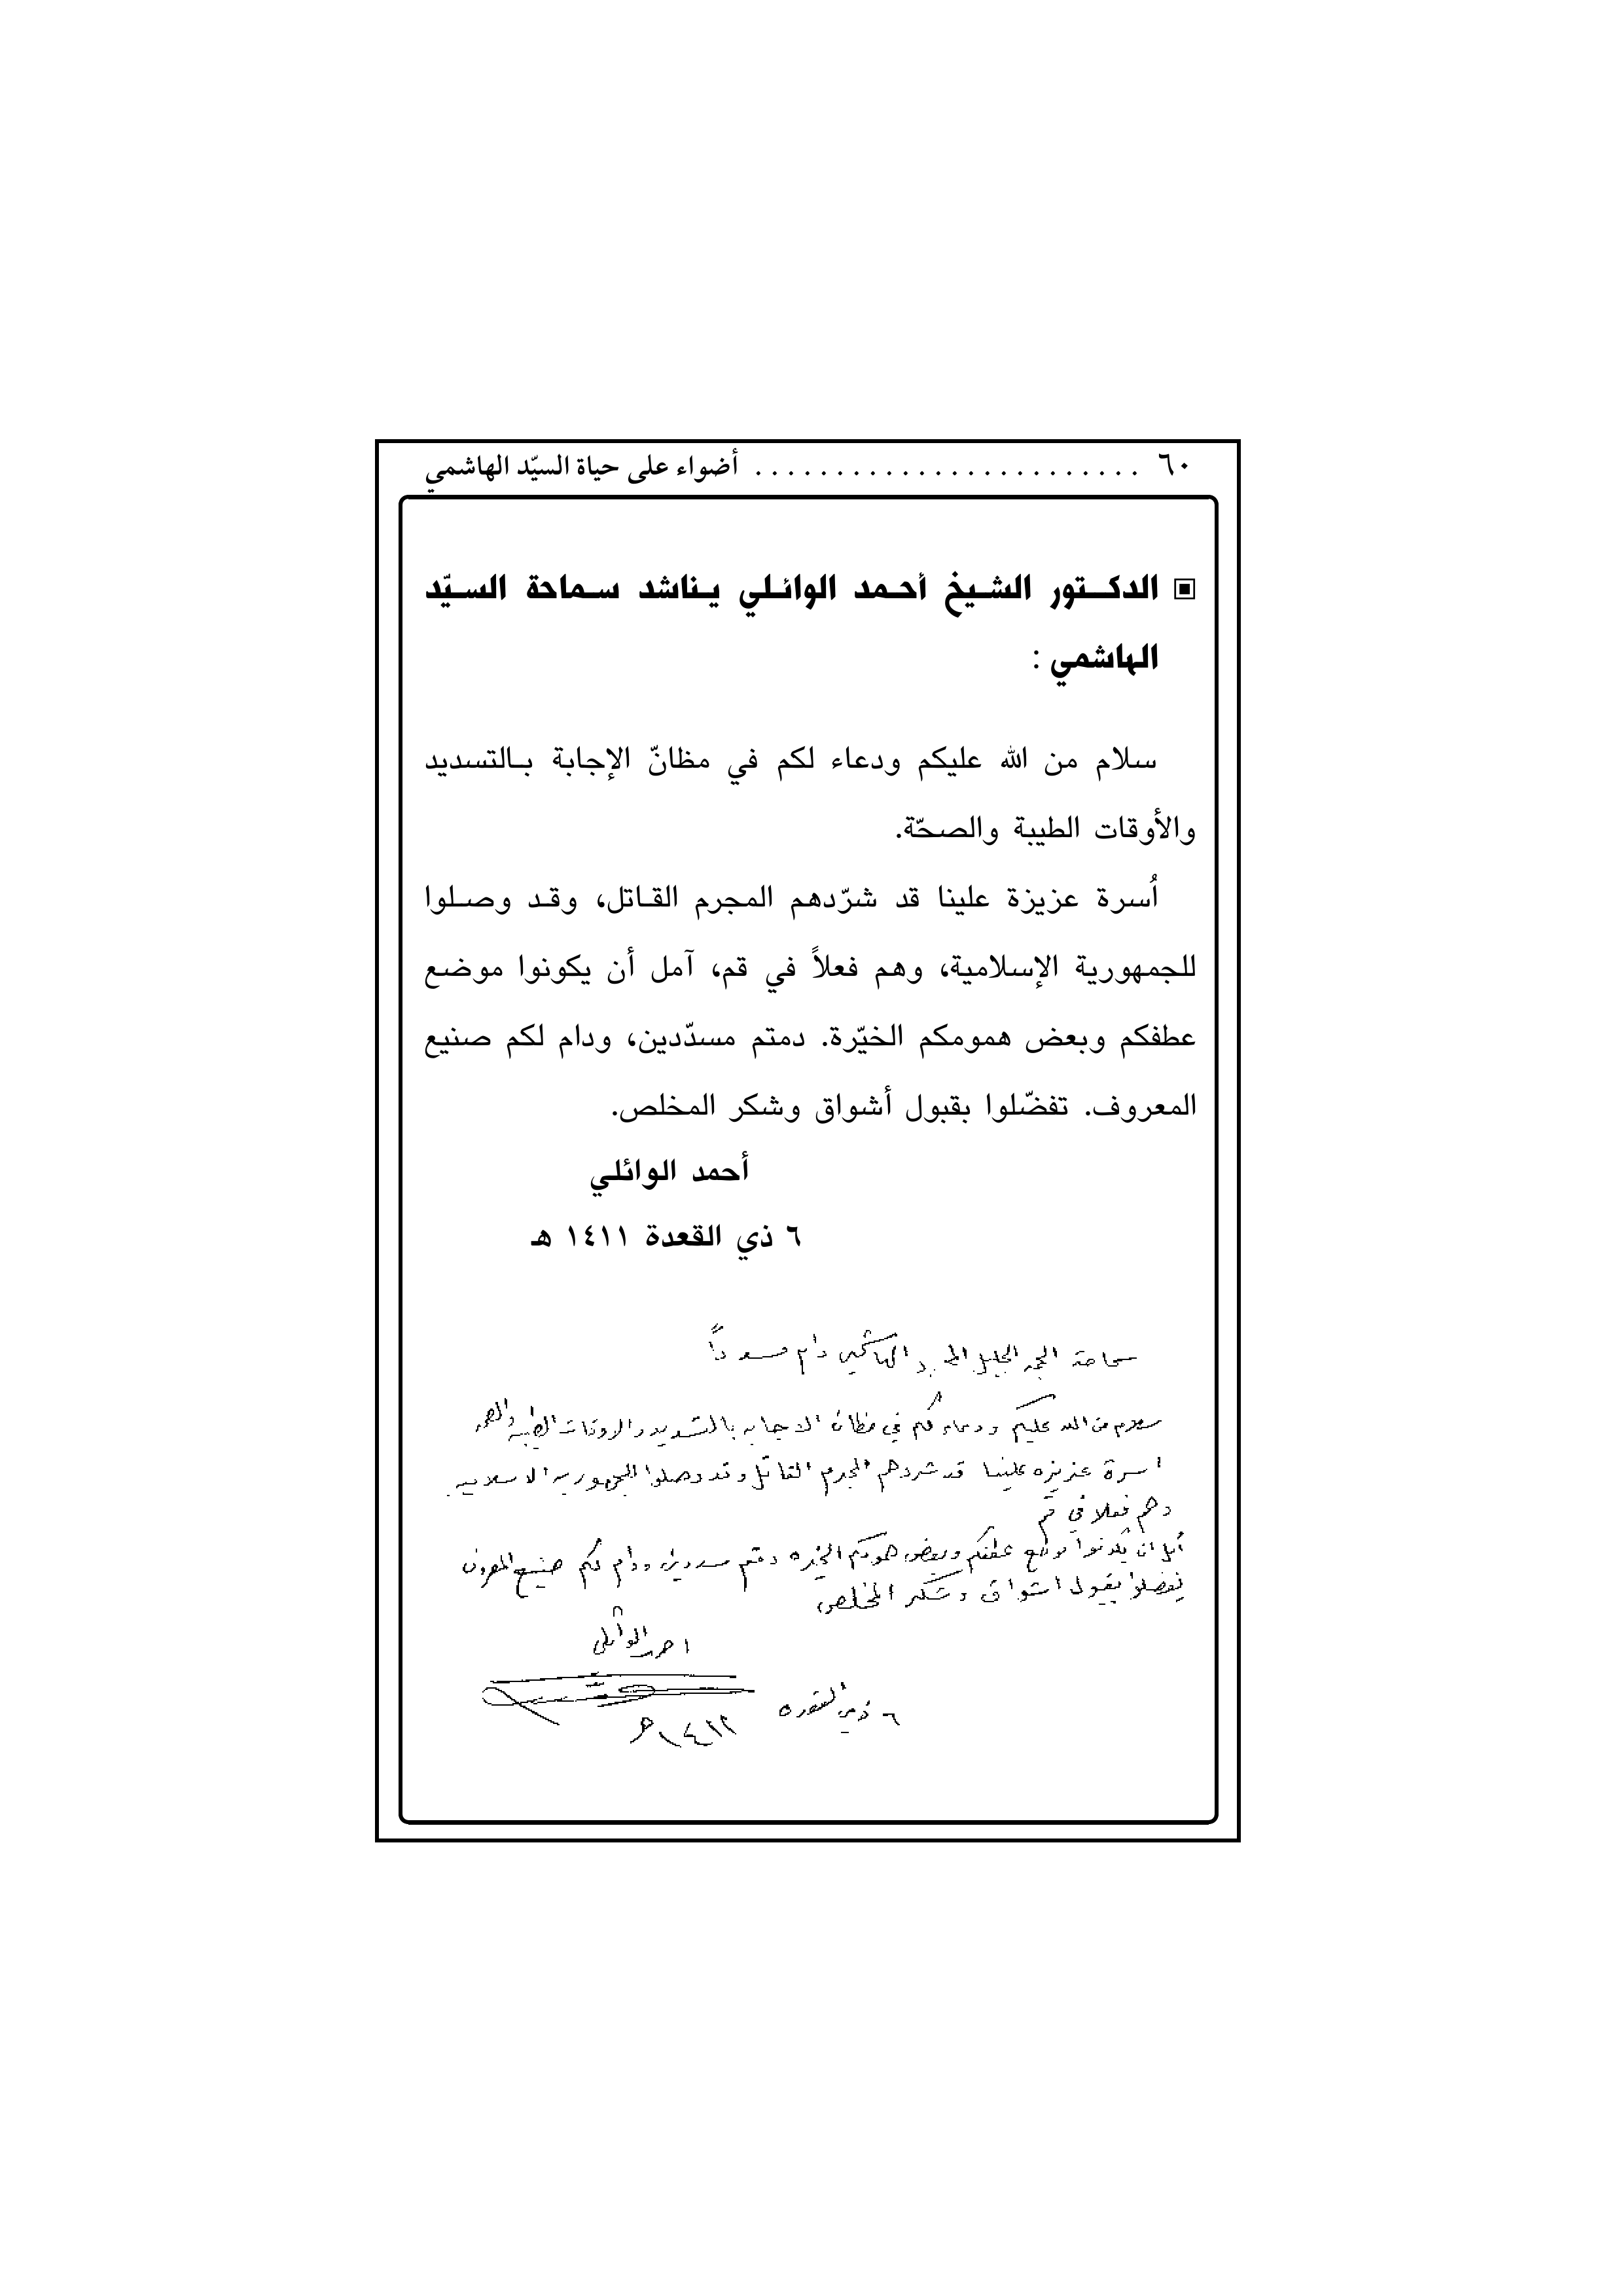 ٦٠ ........................ أضواء على حياة السيّد الهاشمي
▣ الدكـتور الشيخ أحمد الوائلي يناشد سماحة السيّد
الهاشمي :
سلام من الله عليكم ودعاء لكم في مظانّ الإجابة بالتسديد
والأوقات الطيبة والصحّة.
أُسرة عزيزة علينا قد شرّدهم المجرم القاتل، وقد وصلوا
للجمهورية الإسلامية، وهم فعلاً في قم، آمل أن يكونوا موضع
عطفكم وبعض همومكم الخيّرة. دمتم مسدّدين، ودام لكم صنيع
المعروف. تفضّلوا بقبول أشواق وشكر المخلص.
أحمد الوائلي
٦ ذي القعدة ١٤١١ هـ
سماحة الحجة الجليل الهاشمي دام مسددا
سلام من الله عليكم ودعاء لكم في مظان الاجابه بالتسديد والاوقات الطيبه والصحه
اسرة عزيزه علينا قد شردهم المجرم القاتل وقد وصلوا للجمهوريه الاسلاميه
وهم فعلا في قم
آمل ان يكونوا موضع عطفكم وبعض همومكم الخيره دمتم مسددين ودام لكم صنيع المعروف
تفضلوا بقبول اشواق وشكر المخلص
احمد الوائلي
٦ ذي القعده